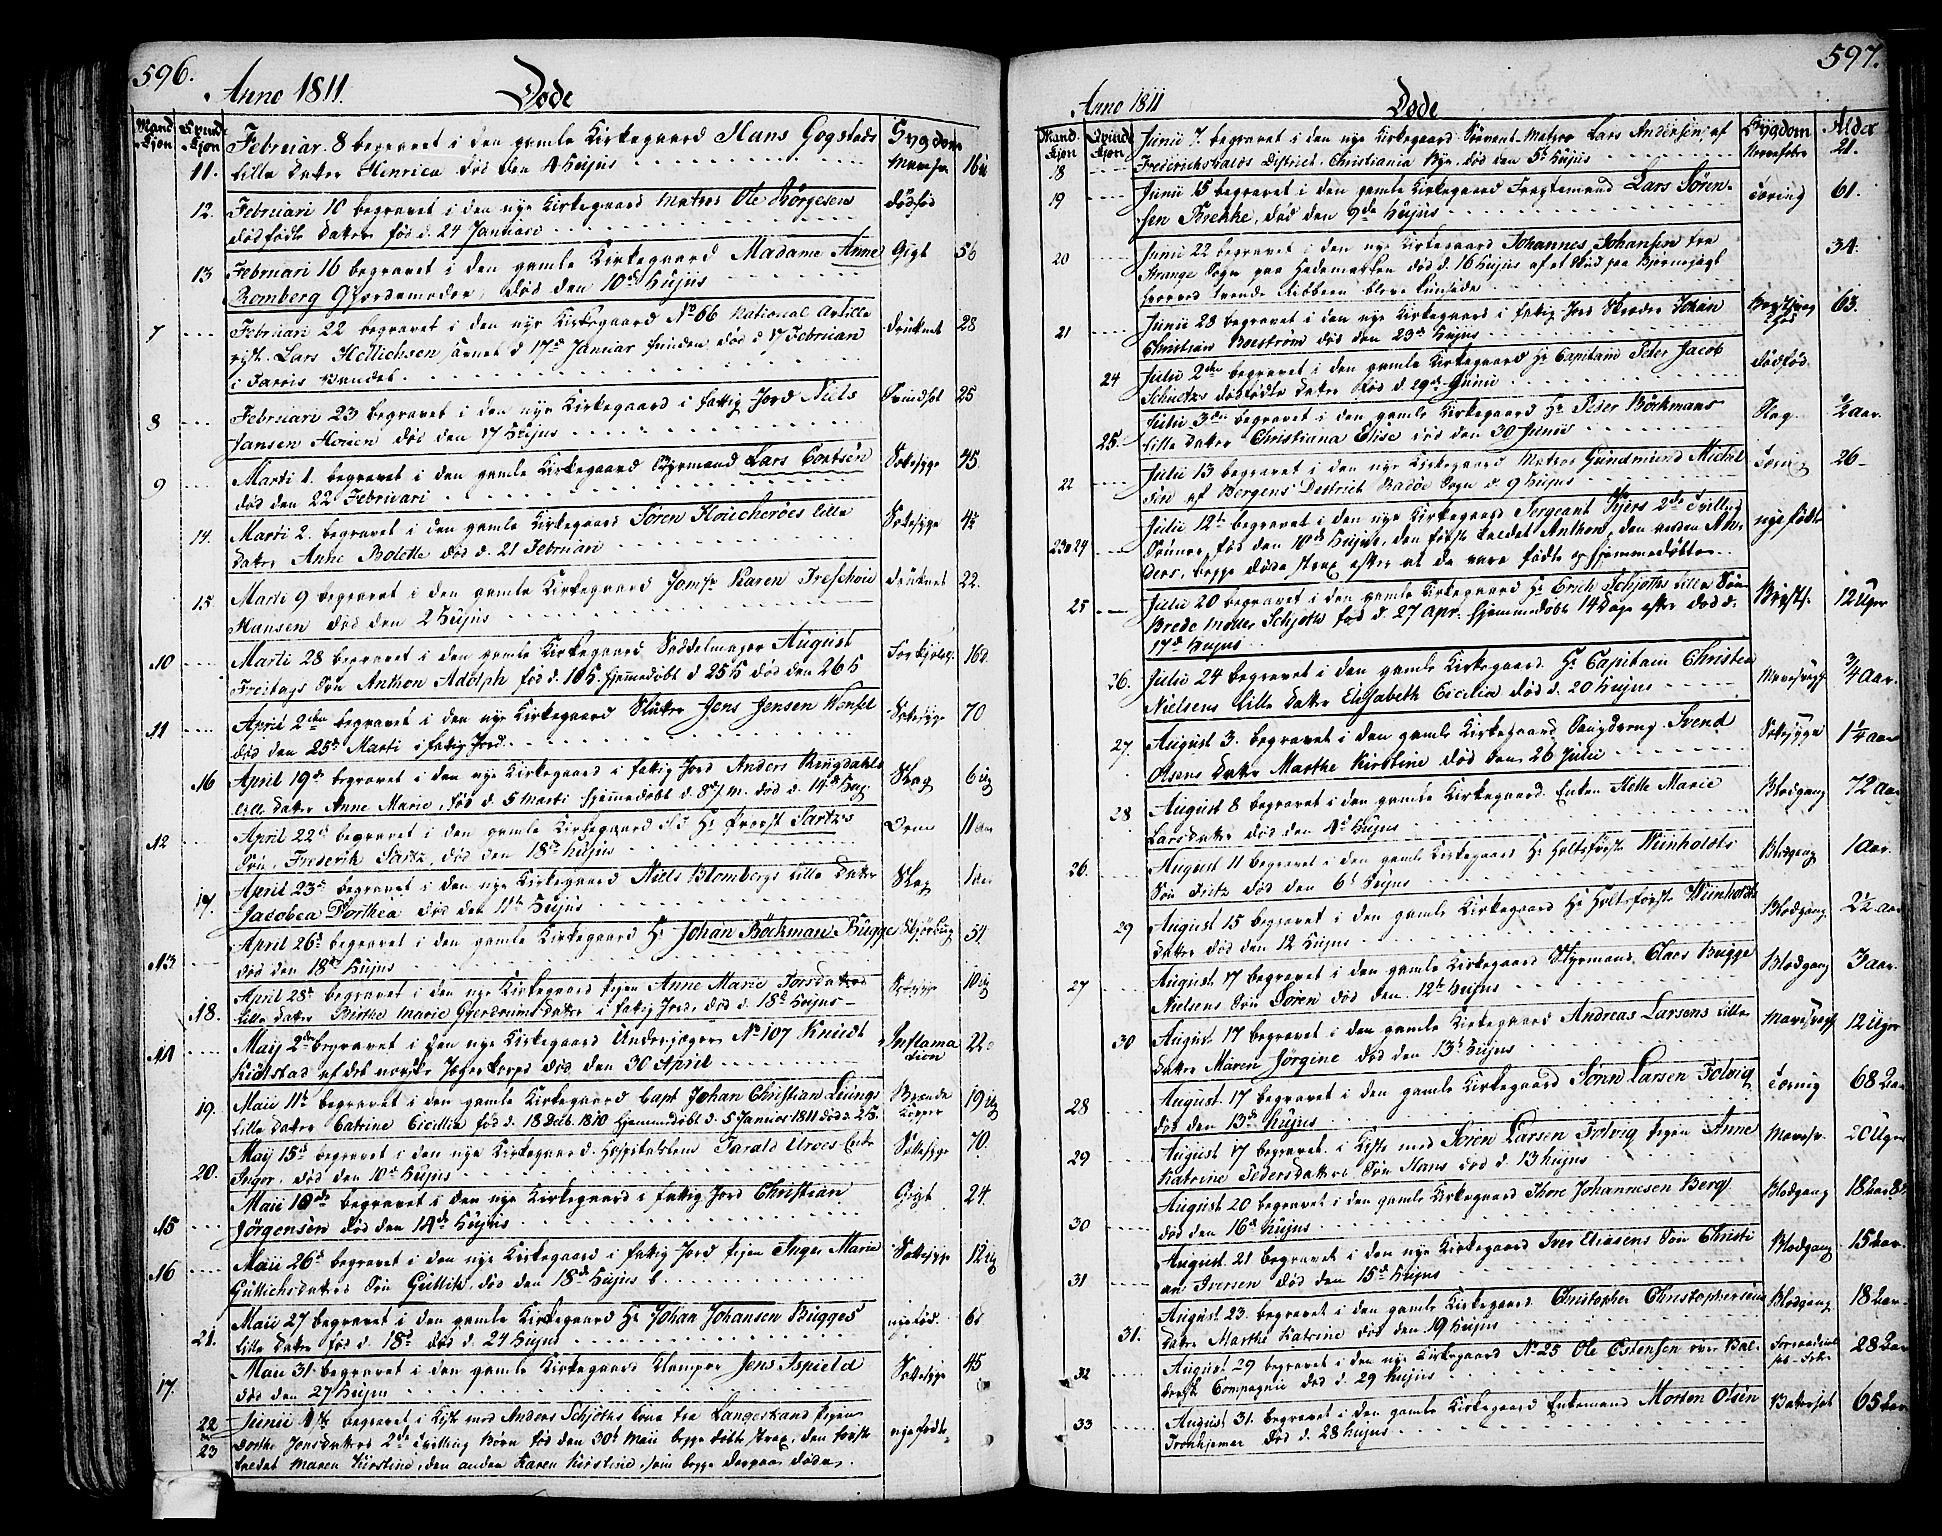 596.
Anno 1811.
Døde
Mand Kjøn
Qvinde Kjøn
Sygdom
11. Februar. 8 begravet i den gamle Kirkegaard Hans Gogstads
lille Datter Henrica død den 4 Hujus
12. Februari 10 begravet i den nye Kirkegaard Matros Ole Børgesens dødfød
dødfødte Datter fød d. 24 Januari
13 Februari 16 begravet i den gamle Kirkegaard Madame Anne Gigt 56
Bomberg Gjordemoder, død den 10de Hujus
7 Februari 22 begravet i den nye Kirkegaard No 66 National Artille druknet 28
rist. Lars Hellichsen d 17de Januar funden død d 17 Februari
i Farris Vandet.
8 Februari 23 begravet i den nye Kirkegaard i fattig Jord Niels 25
Jansen død den 17 Hujus
9 Marti 1. begravet i den gamle Kirkegaard Styrmand Lars Sottesyge 45
død den 22 Februari
14. Marti 2. begravet i den gamle Kirkegaard Søren lille Sottesyge
Datter Anne Bolette død d. 21 Februari
15. Marti 9 begravet i den gamle Kirkegaard Jomfr Karen druknet 22.
Hansen død den 2 Hujus
10 Marti 28 begravet i den gamle Kirkegaard Saddelmager August
Freitags Søn Anthon Adolph fød d. hjemmedøbt d død den
11 April 2den begravet i den nye Kirkegaard Jens Jensen Sottesyge 70
død den 25de Marti i fattig Jord.
16 April 19de begravet i den nye Kirkegaard i fattig Jord Anders Ringdahls Slag 6
lille Datter Anne Marie, fød d. 5 Marti hjemmedøbt d. død d. 14de Huj
12 April 22de begravet i den gamle Kirkegaard S. T. Hr Provst Sartzs Orm 11 aar
Søn, Frederik Sartz, død den 18de Hujus
17. April 23de begravet i den nye Kirkegaard Niels Blombergs lille Datter Slag
Jacobea Dorthea død den 11te Hujus
13 April 26de begravet i den gamle Kirkegaard Hr Johan Bøckman Bugge Skjørbug 54.
død den 18de Hujus
18. April 28de begravet i den nye Kirkegaard Pigen Anne Marie Torsdatters
lille Datter Birthe Marie i fattig Jord, død d. 18de Hujus
14 Maij 2den begravet i den nye Kirkegaard Underjæger No 107 Knudt Inflama
af det norske Jæger Korps død den 30 April dion
19. Maii 11te begravet i den gamle Kirkegaard Capt Johan Christian
lille Datter Catrine Cicillia fød d. 18 Deb. 1810 hjemmedøbt d. 5 Januar 1811 død
20. Maij 15de begravet i den nye Kirkegaard Hospitalslem Tarald Enke Sottesyge 70.
Inger, død den 10de Hujus
15 Maii begravet i den nye Kirkegaard i fattig Jord Christian Gigt 24
Jørgensen død den 14de Hujus
16 Maii 26de begravet i den nye Kirkegaard i fattig Jord Pigen Inger Marie Sottesyge
Gullichsdatters Søn Gullik, død den 18de Hujus
21. Maii 27 begravet i den gamle Kirkegaard Hr Johan Johansen Bugges nyefød.
lille Datter fød d. 18de død d. 24 Hujus
17. Maii 31 begravet i den gamle Kirkegaard Klamper Jens Sottesyge 45
død den 27 Hujus
22 Junii begravet i Kiste med Anders Schjøths Kone fra Langestrand Pigen
23 Dorthe Jonsdatters 2de Tvilling Børn fød den 30te Maii begge døbt strax, den første nyefødte
kaldet Maren Kirstine, den anden Karen Kirstine, som begge derpaa døde.
597.
Anno 1811
Døde
Mand Kjøn
Qvinde Kjøn
Sygdom
Alder
18 Junii 7. begravet i den nye Kirkegaard Matros Lars Andersen, af 21.
Frederichshalds District, Christiania Bye, død den 5te Hujus
19 Junii 15 begravet i den gamle Kirkegaard Fragtemand Lars Søren- Tæring 61.
sen Brekke, død den 9de Hujus
20 Junii 22 begravet i den nye Kirkegaard Johannes Johansen fra 34.
Strange Sogn paa Hedemarken død d. 16 Hujus af et Skud paa Bjørnejagt
hvorved trende Ribbeen bleve
21 Junii 28 begravet i den nye Kirkegaard i fattig Jord Skreder Johan 63.
Christian død den 23de Hujus
24 Julii 2den begravet i den gamle Kirkegaard Hr Capitain Peter Jacob dødfød.
Schultzs dødfødte Datter fød d. 29de Junii
25. Julii 3die begravet i den gamle Kirkegaard Hr Peter Bøckmans Slag. ½ aar.
lille Datter Christiana Elise død den 30 Junii
22 Julii 13 begravet i den nye Kirkegaard Matros Gundmund Michel 26
sen af Bergens Destrict Sogn d. 9 Hujus
23 24 Julii 12te begravet i den nye Kirkegaard Sergeant 2de Tvilling nyefødte
Sønner, fød den 10de Hujus, den første kaldet Anthon, den anden An-
ders, begge døde strax efter at de vare fødte og hjemmedøbte
25 Julii 20 begravet i den gamle Kirkegaard Hr Erich Schjøths lille Søn 12 Uger
Brede Møller Schjøth fød d. 27 Apr. hjemmedøbt 14 Dage efter død d.
17de Hujus
26. Julii 24 begravet i den gamle Kirkegaard Hr Capitain Christen ¾ Aar.
Nielsens lille Datter Elisabeth Cicilia død d. 20 Hujus
27. August 3. begravet i den gamle Kirkegaard Svend Sottesyge 1¼ aar
Olsens Datter Marthe Kirstine død den 26 Julii
28. August 8 begravet i den gamle Kirkegaard Enken Helle Marie Blodgang 72 aar
Larsdatter død den 4de Hujus
26. August 11 begravet i den gamle Kirkegaard Hr Holtsførste Weinholdts Blodgang 1 Aar.
Søn Fritz død den 6te Hujus
29 August 15 begravet i den gamle Kirkegaard Hr Holtsførste Weinholdts Blodgang 2½ aar
Datter død den 12 Hujus
27 August 17 begravet i den gamle Kirkegaard Styrmand Claes Bugge Blodgang 3 aar.
Nielsens Søn Søren død den 12te Hujus
30 August 17 begravet i den gamle Kirkegaard Andreas Larsens lille 12 Uger
Datter Maren Jørgine død den 13de Hujus
28 August 17 begravet i den gamle Kirkegaard Sørn Larsen Folvig Tæring 68 aar
død den 13de Hujus
29 August 17 begravet i Kiste med Søren Larsen Folvig Pigen Anne 20 Uger
Katrine Pedersdatters Søn Hans død d. 13 Hujus
30 August 20 begravet i den gamle Kirkegaard Thore Johannesen Berg Blodgang
død den 16de Hujus
31 August 21 begravet i den nye Kirkegaard Iver Eliasens Søn Christi Blodgang 15 aar
an Iversen død den 15de Hujus
31. August 23. begravet i den gamle Kirkegaard Christopher Christophersens Blodgang 18 aar
Datter Marthe Katrine død den 19 Hujus
32 August 29 begravet i den nye Kirkegaard No 25 Ole Estensen 28 aar
Compagnie død d. 29 Hujus
33 August 31. begravet i den gamle Kirkegaard Enkemand Morten Olsen 65 aar
Tronhjemer død d. 28 Hujus